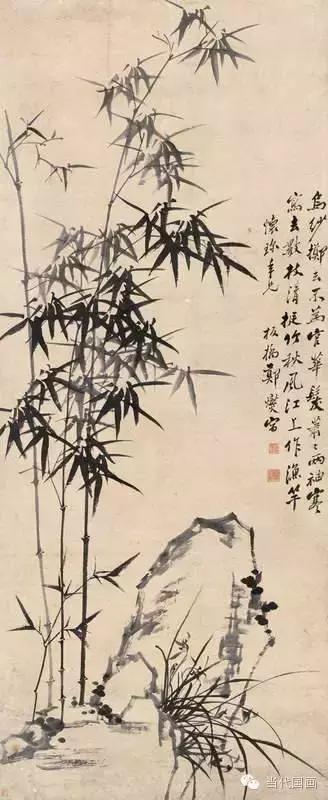 烏紗擲去不為官華髮蕭々兩袖寒
寫去數枝清挺竹秋風江上作漁竿
懷珎年兄 板橋鄭燮
当代国画